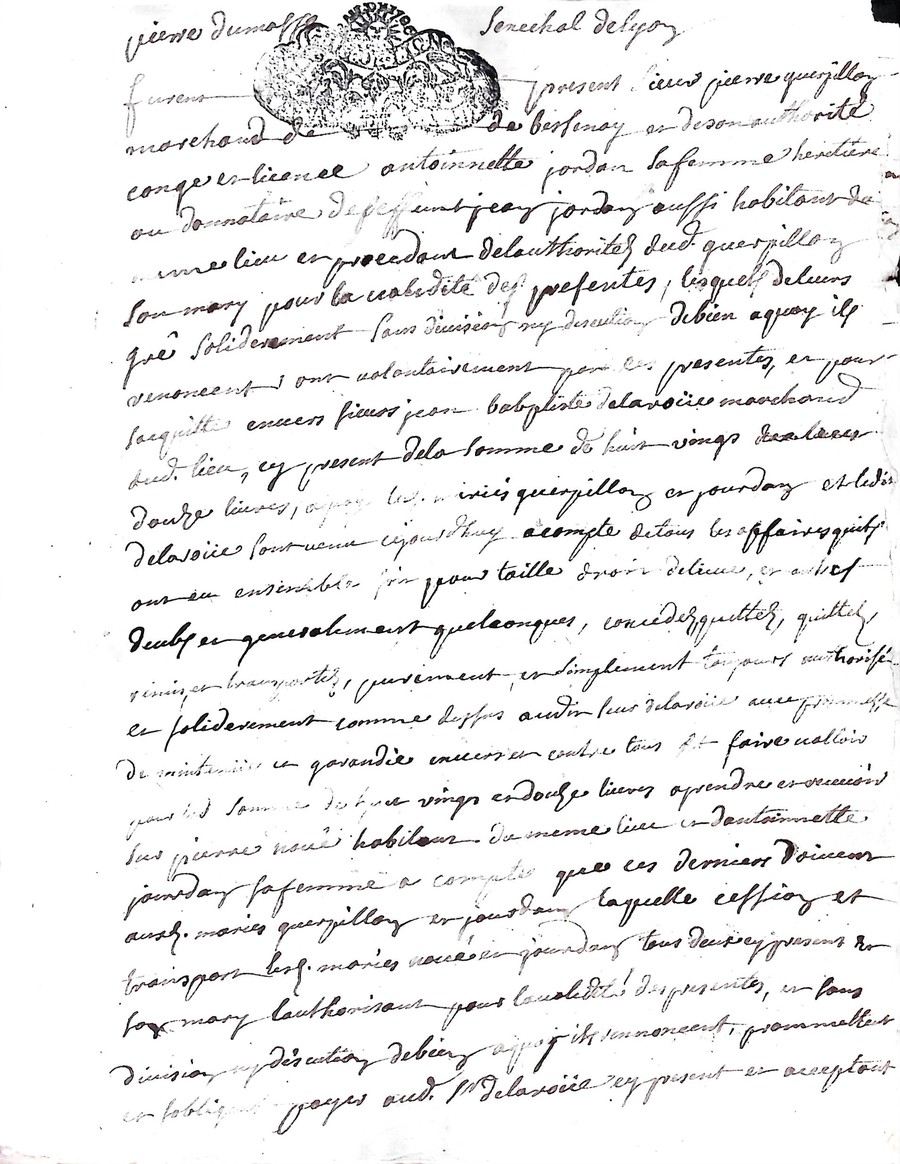 pierre dumasse senechal delyon
furent present sieur pierre querpillon
marchand de de bessenay et deson authorité
conge et licence antoinnette jordan sa femme heritiere
ou donnataire de deffunt jean jordan aussi habitant du
meme lieu et procedant delauthoritez dud. querpillon
son mary pour la validité des presentes, lesquels deleurs
gré soliderement sans division ny discution debien aquoy ils
renoncent ont volontairement par ces presentes, et pour
sacquitté envers sieurs jean babptiste delaroüe marchand
dud. lieu, cy present dela somme de huit vings
douze livres, lesd. mariés querpillon et jourdan et ledit
delaroüe sont venu cejourdhuy acompte detous les affaires quils
ont eu ensemble pour taille droit delieue, et autres
deubs et generalement quelconques, concedez, quittez,
remis, et transportez, purement et simplement toujours authorisé
et soliderement comme dessus audit sieur delaroüe avec promesse
de maintenir et garandie envers et contre tous et faire valloir
pour lad somme de huit vings et douze livres aprendre et recevoir
sur pierre noüé habitant du meme lieu et dantoinnette
jourdan sa femme a compte que ces derniers doivent
ausd. mariés querpillon et jourdan laquelle cession et
transport lesd. mariés noüé et jourdan tous deux cy present et
son mary lauthorisant pour lavalidité des presentes, et sans
division ny discution debien aquoy ils renoncent, promettent
et sobligent payer aud. Sr delaroüe cy present et acceptant